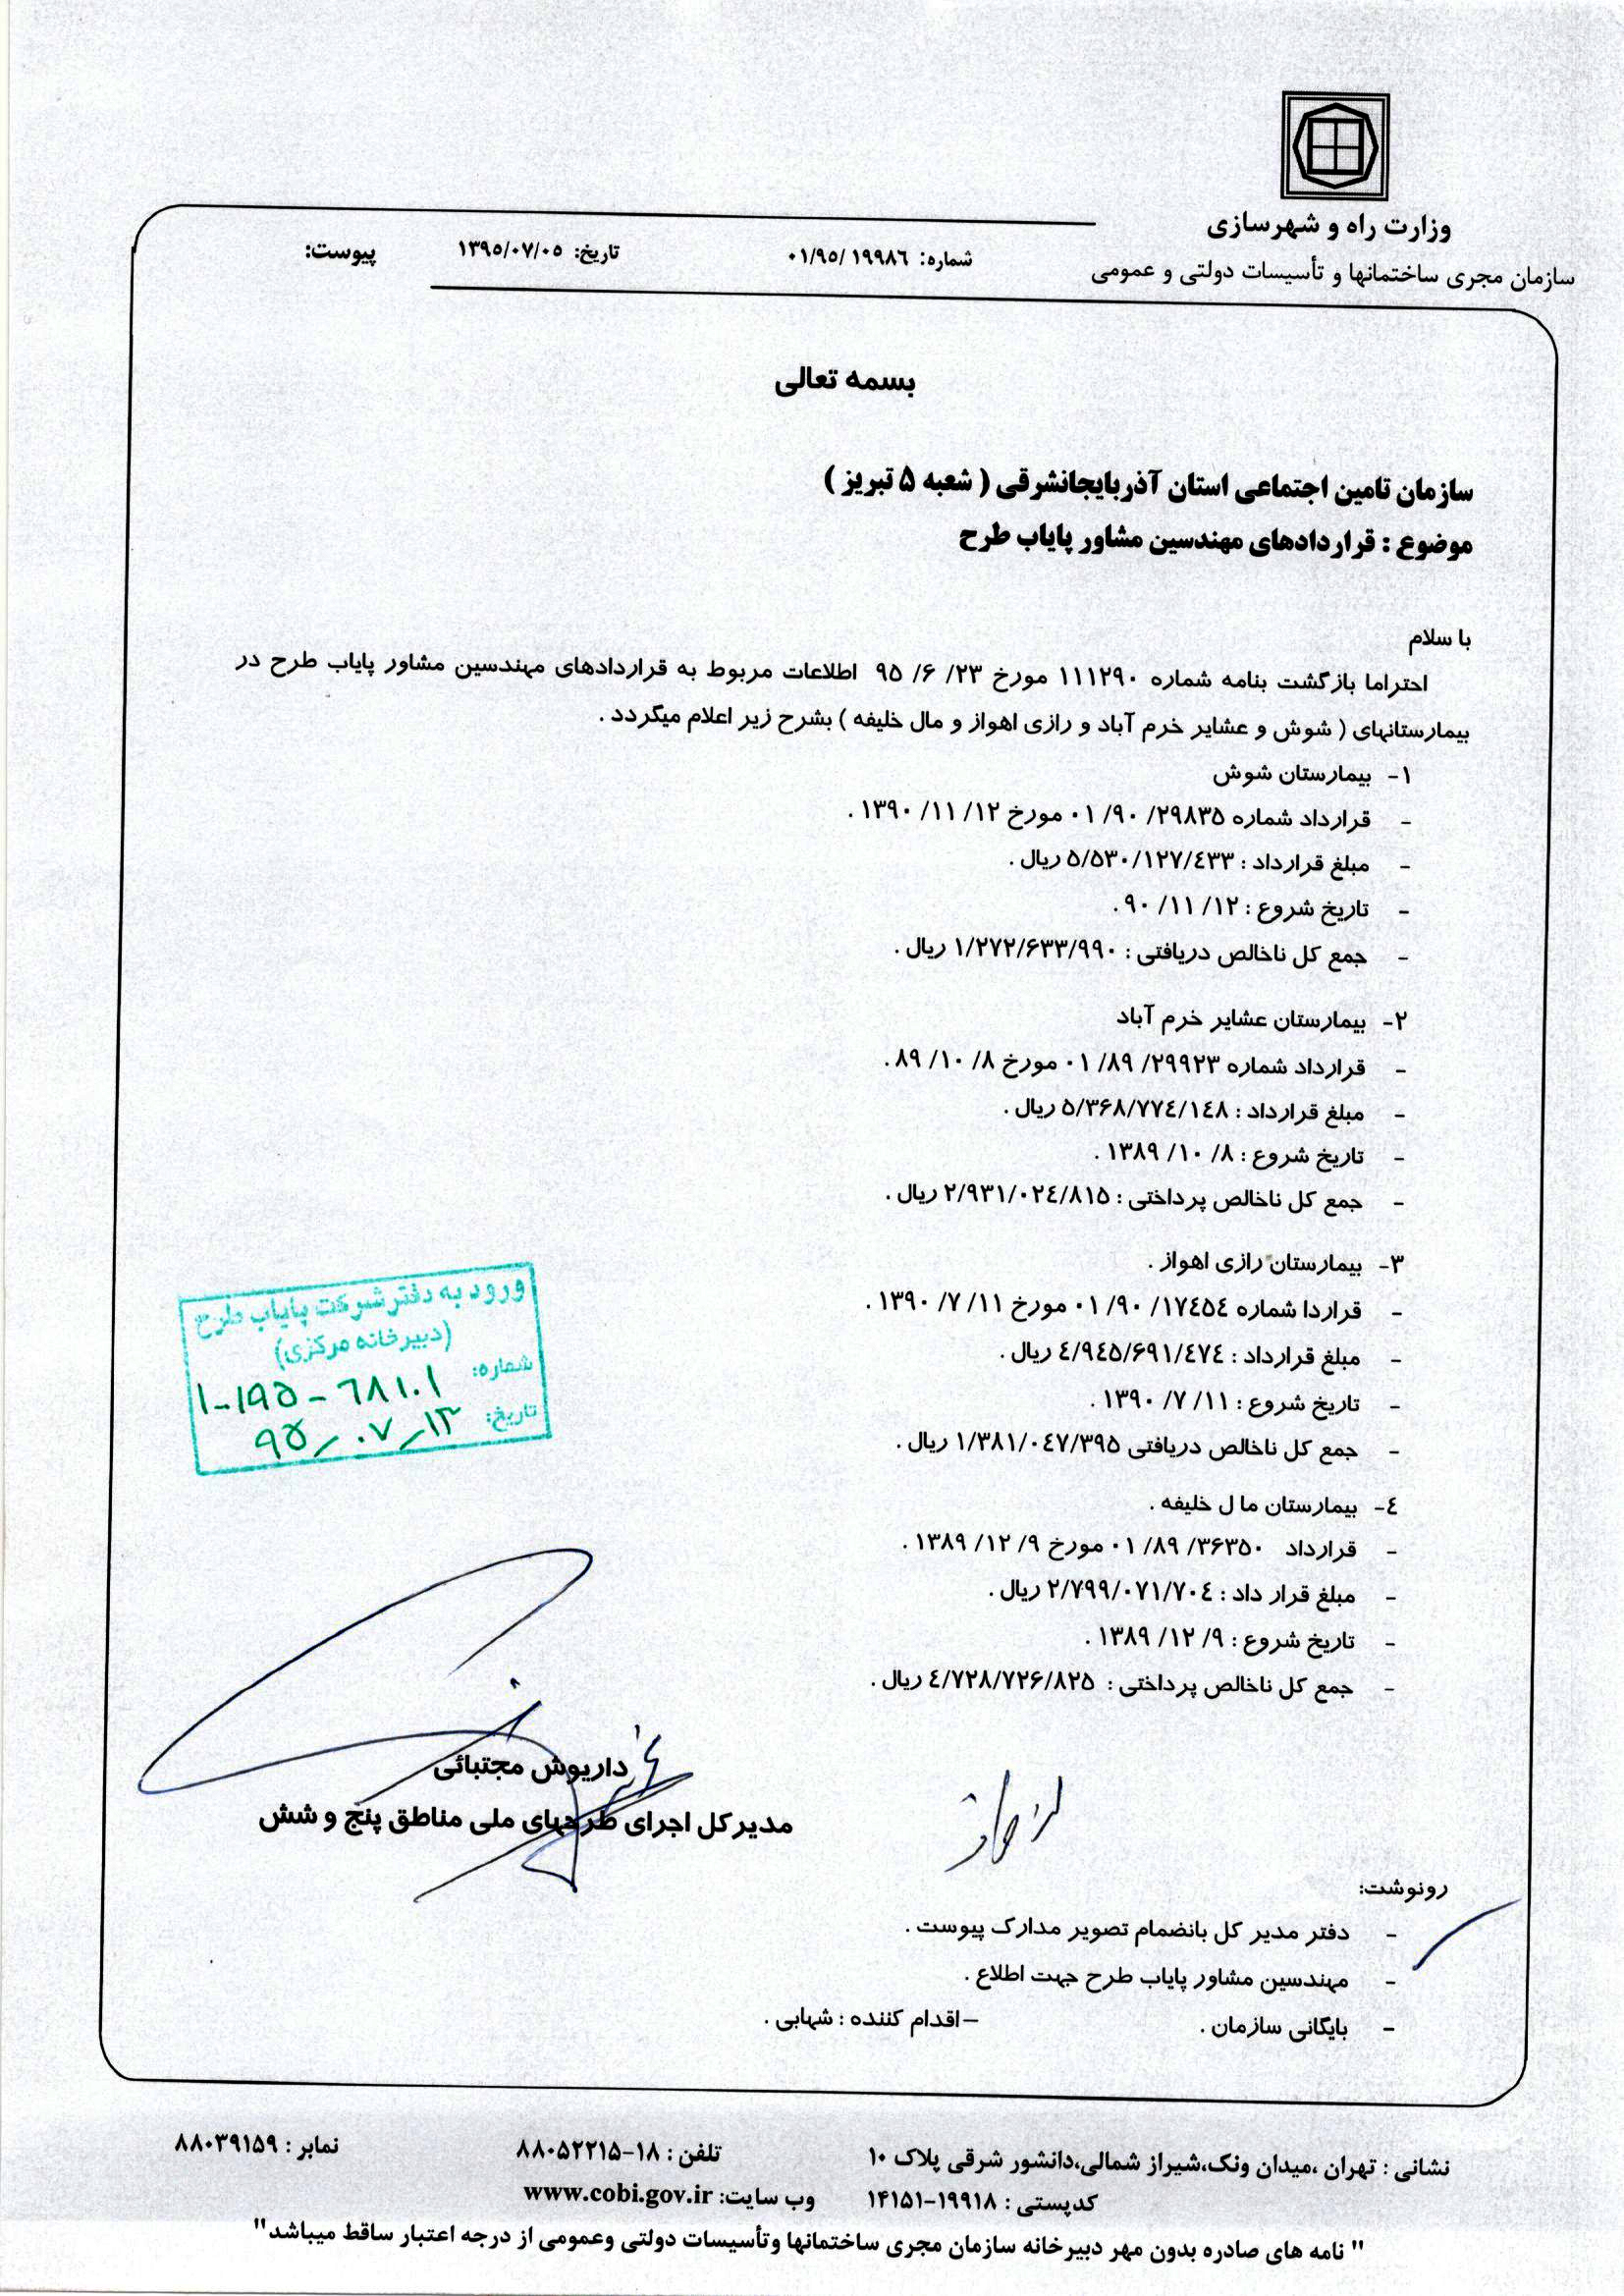 وزارت راه و شهرسازی
سازمان مجری ساختمانها و تأسیسات دولتی و عمومی
شماره: ۰۱/۹۵/۱۹۹۸۶
تاریخ: ۱۳۹۵/۰۷/۰۵
پیوست:
بسمه تعالی
سازمان تامین اجتماعی استان آذربایجانشرقی ( شعبه ۵ تبریز )
موضوع : قراردادهای مهندسین مشاور پایاب طرح
با سلام
احتراما بازگشت بنامه شماره ۱۱۱۲۹۰ مورخ ۲۳/ ۶/ ۹۵ اطلاعات مربوط به قراردادهای مهندسین مشاور پایاب طرح در
بیمارستانهای ( شوش و عشایر خرم آباد و رازی اهواز و مال خلیفه ) بشرح زیر اعلام میگردد .
۱- بیمارستان شوش
- قرارداد شماره ۲۹۸۳۵/ ۹۰/ ۰۱ مورخ ۱۲/ ۱۱/ ۱۳۹۰ .
- مبلغ قرارداد : ۵/۵۳۰/۱۲۷/٤۳۳ ریال .
- تاریخ شروع : ۱۲/ ۱۱/ ۹۰ .
- جمع کل ناخالص دریافتی : ۱/۲۷۲/۶۳۳/۹۹۰ ریال .
۲- بیمارستان عشایر خرم آباد
- قرارداد شماره ۲۹۹۲۳/ ۸۹/ ۰۱ مورخ ۸/ ۱۰/ ۸۹ .
- مبلغ قرارداد : ۵/۳۶۸/۷۷٤/۱٤۸ ریال .
- تاریخ شروع : ۸/ ۱۰/ ۱۳۸۹ .
- جمع کل ناخالص پرداختی : ۲/۹۳۱/۰۲٤/۸۱۵ ریال .
۳- بیمارستان رازی اهواز .
- قراردا شماره ۱۷٤۵٤/ ۹۰/ ۰۱ مورخ ۱۱/ ۷/ ۱۳۹۰ .
- مبلغ قرارداد : ٤/۹٤۵/۶۹۱/٤۷٤ ریال .
- تاریخ شروع : ۱۱/ ۷/ ۱۳۹۰ .
- جمع کل ناخالص دریافتی ۱/۳۸۱/۰٤۷/۳۹۵ ریال .
٤- بیمارستان ما ل خلیفه .
- قرارداد ۳۶۳۵۰/ ۸۹/ ۰۱ مورخ ۹/ ۱۲/ ۱۳۸۹ .
- مبلغ قرار داد : ۲/۷۹۹/۰۷۱/۷۰٤ ریال .
- تاریخ شروع : ۹/ ۱۲/ ۱۳۸۹ .
- جمع کل ناخالص پرداختی : ٤/۷۲۸/۷۲۶/۸۲۵ ریال .
ورود به دفتر شرکت پایاب طرح
(دبیرخانه مرکزی)
شماره:
تاریخ: ۹۵/۰۷/۱۳
داریوش مجتبائی
مدیرکل اجرای طرحهای ملی مناطق پنج و شش
رونوشت:
- دفتر مدیر کل بانضمام تصویر مدارک پیوست .
- مهندسین مشاور پایاب طرح جهت اطلاع .
- بایگانی سازمان . –اقدام کننده : شهابی .
نشانی : تهران ،میدان ونک،شیراز شمالی،دانشور شرقی پلاک ۱۰ تلفن : ۱۸-۸۸۰۵۲۲۱۵ نمابر : ۸۸۰۳۹۱۵۹
کدپستی : ۱۹۹۱۸-۱۴۱۵۱ وب سایت: www.cobi.gov.ir
" نامه های صادره بدون مهر دبیرخانه سازمان مجری ساختمانها وتأسیسات دولتی وعمومی از درجه اعتبار ساقط میباشد"